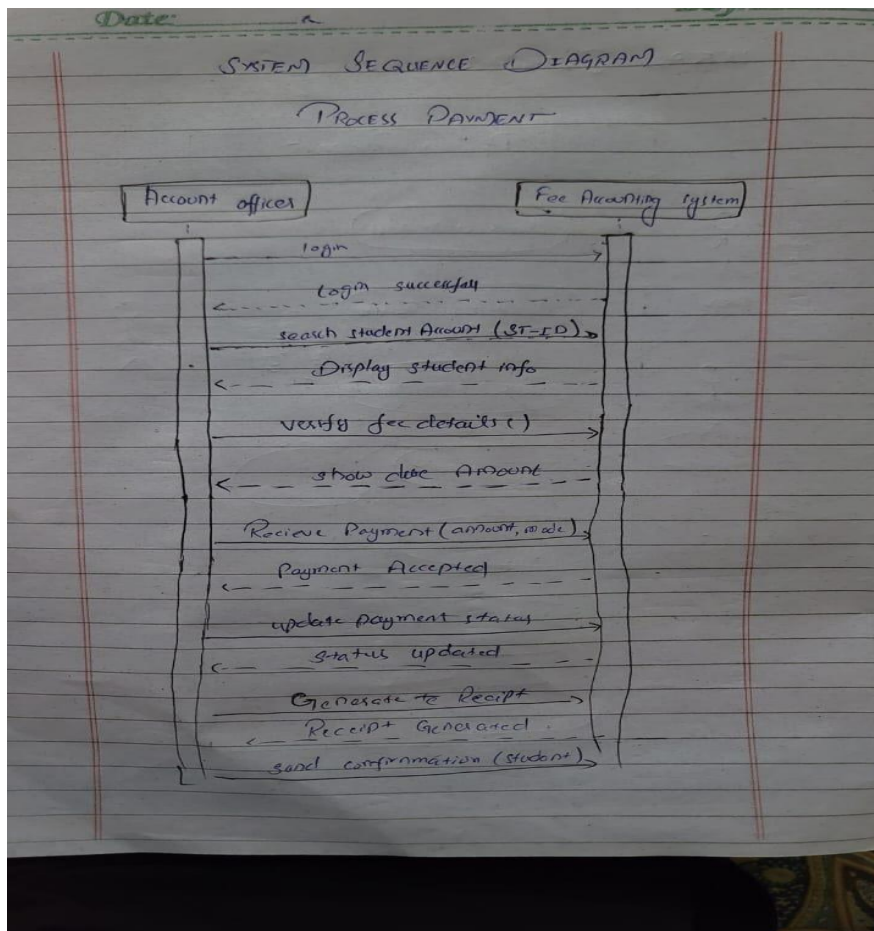 Date:
SYSTEM SEQUENCE DIAGRAM
PROCESS PAYMENT
Account officer
Fee Accounting system
login
Login successfull
search student Account (ST-ID)
Display student info
verify fee details ()
show due Amount
Recieve Payment (amount, mode)
Payment Accepted
update payment status
status updated
Generate te Recipt
Receipt Generated
send confirmmation (student)